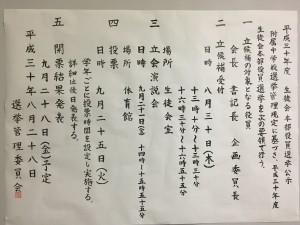 平成三十年度 生徒会本部役員選挙公示
附属中学校選挙管理規定に基づき、平成三十年度
生徒会本部役員選挙を次の要領で行う。
一 立候補の対象となる役員
会長 書記長 企画委員長
二 立候補受付
日時 八月三十日(木)
十三時十分〜十三時三十分
十六時三十分〜十六時五十五分
場所 生徒会室
三 立会演説会
日時 九月二十一日(金)十四時〜十五時五十分
場所 体育館
四 投票
九月二十五日(火)
学年ごとに投票時間を設定し実施する。
詳細は後日発表する。
五 開票結果発表
九月二十八日(金)予定
平成三十年八月二十八日
選挙管理委員会